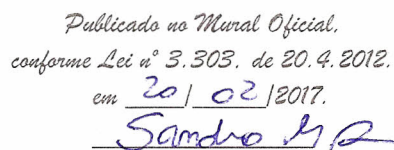 Publicado no Mural Oficial,
conforme Lei nº 3.303, de 20.4.2012.
em 20 / 02 /2017.
Sandro